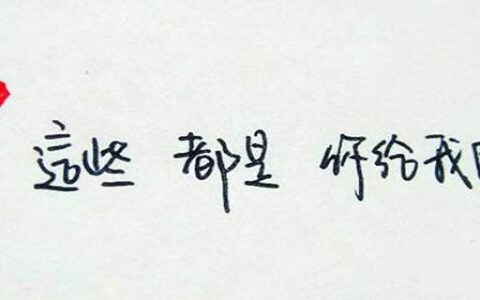 這些 都是 你给我